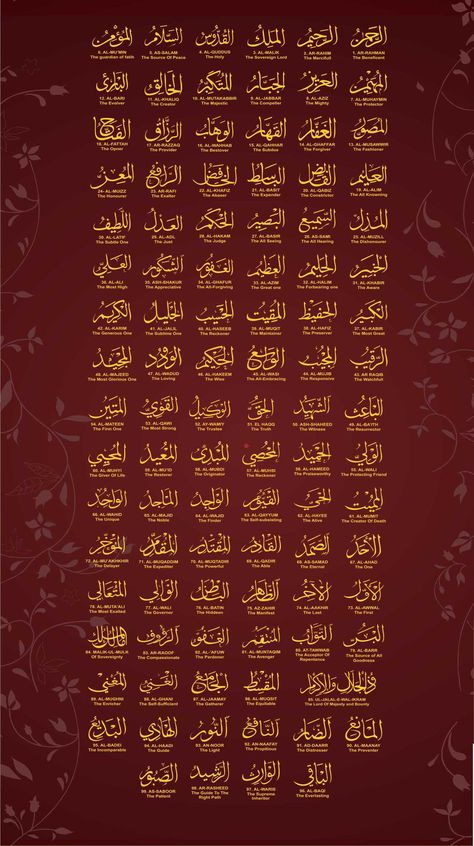 الرحمن
1. AR-RAHMAN
The Beneficent
الرحيم
2. AR-RAHIM
The Mercifull
الملك
3. AL-MALIK
The Sovereign Lord
القدوس
4. AL-QUDDUS
The Holy
السلام
5. AS-SALAM
The Source Of Peace
المؤمن
6. AL-MU'MIN
The guardian of faith
المهيمن
7. AL-MUHAYMIN
The Protector
العزيز
8. AL-AZIZ
The Mighty
الجبار
9. AL-JABBAR
The Compeller
المتكبر
10. AL-MUTAKABBIR
The Majestic
الخالق
11. AL-KHALIQ
The Creator
البارئ
12. AL-BARI
The Evolver
المصور
13. AL-MUSAWWIR
The Fashioner
الغفار
14. AL-GHAFFAR
The Forgiver
القهار
15. AL-QAHHAR
The Subdue
الوهاب
16. AL-WAHHAB
The Bestover
الرزاق
17. AR-RAZZAQ
The Provider
الفتاح
18. AL-FATTAH
The Opner
العليم
19. AL-ALIM
The All Knowning
القابض
20. AL-QABIZ
The Constrictor
الباسط
21. AL-BASIT
The Expander
الخافض
22. AL-KHAFIZ
The Abaser
الرافع
23. AR-RAFI
The Exalter
المعز
24. AL-MUIZZ
The Honourer
المذل
25. AL-MUZILL
The Dishonourer
السميع
26. AS-SAMI
The All Hearing
البصير
27. AL-BASIR
The All Seeing
الحكم
28. AL-HAKAM
The Judge
العدل
29. AL-ADL
The Just
اللطيف
30. AL-LATIF
The Subtle One
الخبير
31. AL-KHABIR
The Aware
الحليم
32. AL-HALIM
The Forbearing one
العظيم
33. AL-AZIM
The Great one
الغفور
34. AL-GHAFUR
The All-Forgiving
الشكور
35. ASH-SHAKUR
The Appreciative
العلي
36. AL-ALI
The Most High
الكبير
37. AL-KABIR
The Most Great
الحفيظ
38. AL-HAFIZ
The Preserver
المقيت
39. AL-MUQIT
The Maintainer
الحسيب
40. AL-HASEEB
The Reckoner
الجليل
41. AL-JALIL
The Sublime One
الكريم
42. AL-KARIM
The Generous One
الرقيب
43. AR RAQIB
The Watchfull
المجيب
44. AL-MUJIB
The Responsive
الواسع
45. AL-WASI
The All-Embracing
الحكيم
46. AL-HAKEEM
The Wise
الودود
47. AL-WADUD
The Loving
المجيد
48. AL-MAJEED
The Most Glorious One
الباعث
49. AL-BAYTH
The Resurrector
الشهيد
50. ASH-SHAHEED
The Witness
الحق
51. EL HAQQ
The Truth
الوكيل
52. AY-WAMIY
The Trustee
القوي
53. AL-QAWI
The Most Strong
المتين
54. AL-MATEEN
The Firm One
الولي
55. AL-WALI
The Protecting Friend
الحميد
56. AL-HAMEED
The Praiseworthy
المحصي
57. AL-MUHSI
The Reckoner
المبدئ
58. AL-MUBDI
The Originator
المعيد
59. AL-MU'ID
The Restorer
المحيي
60. AL-MUHYI
The Giver Of Life
المميت
61. AL-MUMIT
The Creator Of Death
الحي
62. AL-HAYEE
The Alive
القيوم
63. AL-QAYYUM
The Self-subsisting
الواجد
64. AL-WAJID
The Finder
الماجد
65. AL-MAJID
The Noble
الواحد
66. AL-WAHID
The Unique
الأحد
67. AL-AHAD
The One
الصمد
68. AS-SAMAD
The Eternal
القادر
69. AL-QADIR
The Able
المقتدر
70. AL-MUQTADIR
The Powerful
المقدم
71. AL-MUQADDIM
The Expediter
المؤخر
72. AL-MU'AKHKHIR
The Delayer
الأول
73. AL-AWWAL
The First
الآخر
74. AL-AAKHIR
The Last
الظاهر
75. AZ-ZAHIR
The Manifest
الباطن
76. AL-BATIN
The Hiddeen
الوالي
77. AL-WALI
The Governor
المتعالي
78. AL-MUTA'ALI
The Most Exalted
البر
79. AL-BARR
The Source of All
Goodness
التواب
80. AT-TAWWAB
The Acceptor Of
Repentance
المنتقم
81. AL-MUNTAQIM
The Avenger
العفو
82. AL-'AFUW
The Pardonner
الرؤوف
83. AR-RAOOF
The Compassionate
مالك الملك
84. MALIK-UL-MULK
Of Sovereignty
ذو الجلال والإكرام
85. UL-JALAL-WAL-IKRAM
The Lord Of Majesty and Bounty
المقسط
86. AL-MUQSIT
The Equitable
الجامع
87. AL-JAAMAY
The Gatherer
الغني
88. AL-GHANI
The Self-Sufficient
المغني
89. AL-MUGHNI
The Enricher
المانع
90. AL-MAANAY
The Preventer
الضار
91. AD-DAARR
The Distresser
النافع
92. AN-NAFAY
The Propitious
النور
93. AN-NOOR
The Light
الهادي
94. AL-HAADI
The Guide
البديع
95. AL-BADEI
The Incomparable
الباقي
96. AL-BAQI
The Everlasting
الوارث
97. AL-WARIS
The Supreme
Inheritor
الرشيد
98. AR-RASHEED
The Guide To The
Right Path
الصبور
99. AS-SABOOR
The Patient